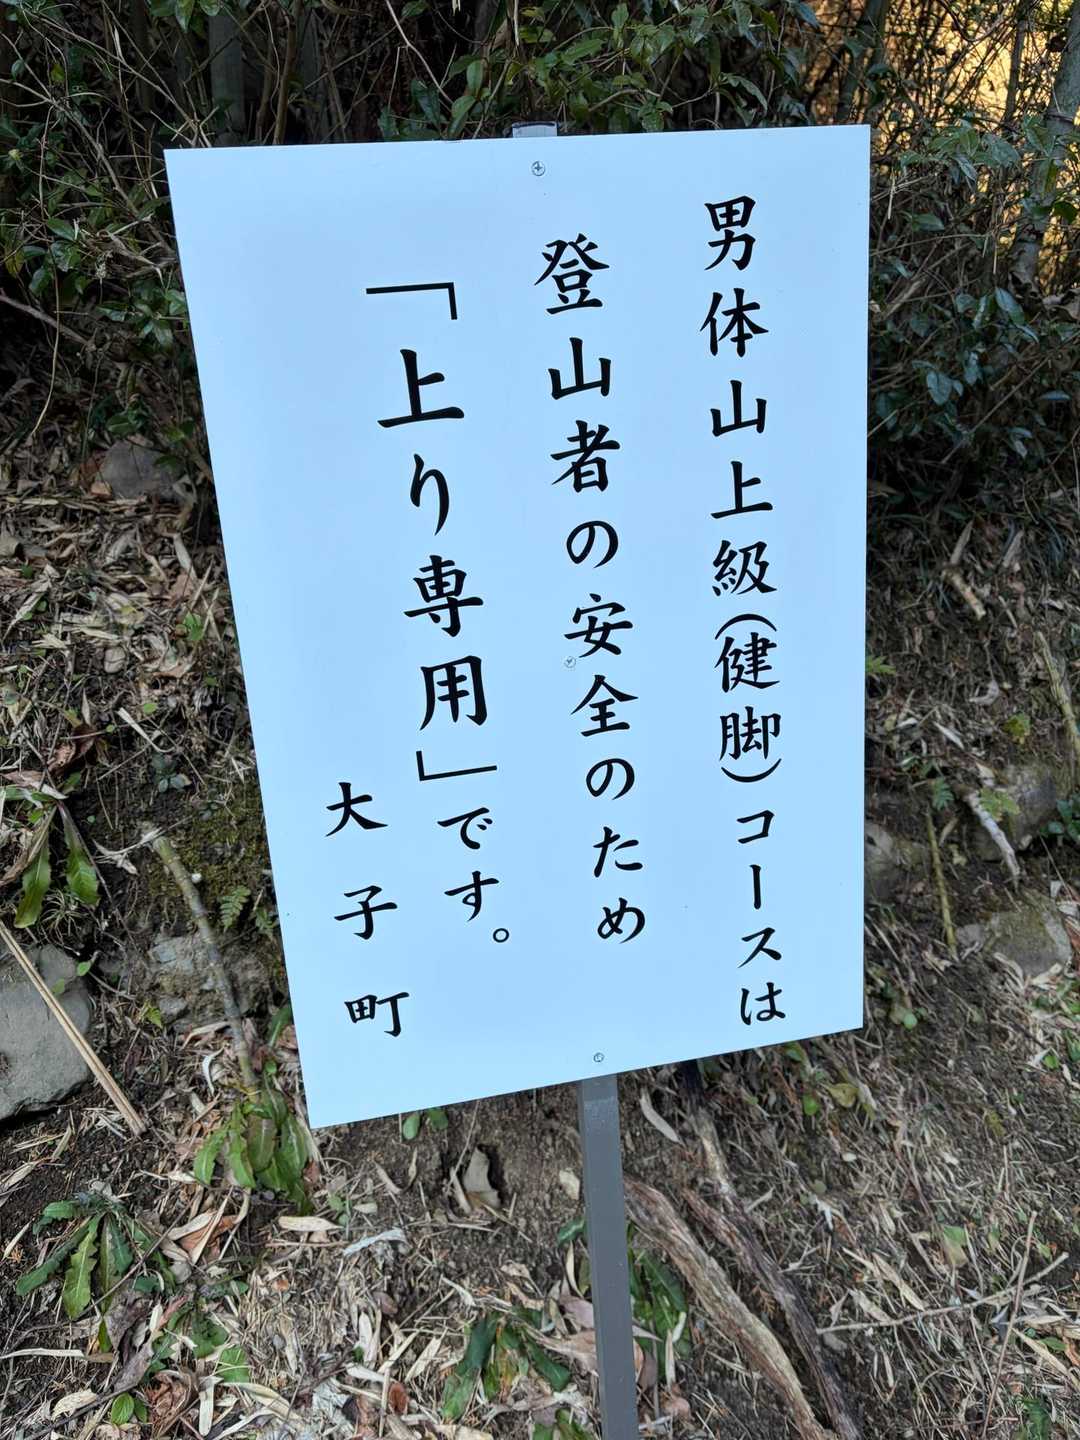 男体山上級(健脚)コースは
登山者の安全のため
「上り専用」です。
大子町